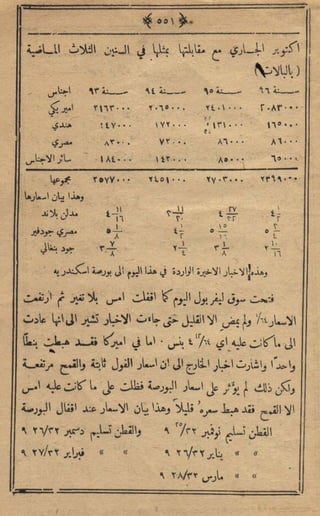 ﴿ ٥٥١ ﴾
اكتوبر الجاري مع مقابلتها بمثلها في السنين الثلاث الماضية
(بالبالات)
سنة ٩٦ سنة ٩٥ سنة ٩٤ سنة ٩٣ اجناس
٢٠٨٣٠٠٠ ٢٤٠١٠٠٠ ٢٠٦٥٠٠٠ ٢١٦٣٠٠٠ اميريكي
١٦٥٠٠٠ ١٣١٠٠٠ ١٧٢٠٠٠ ١٤٧٠٠٠ هندي
٨٦٠٠٠ ٨٦٠٠٠ ٧٢٠٠٠ ٨٣٠٠٠ مصري
٦٥٠٠٠ ٨٥٠٠٠ ١٤٢٠٠٠ ١٨٤٠٠٠ سائر الاجناس
٢٣٦٩٠٠٠ ٢٧٠٣٠٠٠ ٢٤٥١٠٠٠ ٢٥٧٧٠٠٠ مجموعها
وهذا بيان اسعارها
مدلن بلاند
مصري جودفير
جود بنغالي
وهذه الاخبار الاخيرة الواردة في هذا اليوم الى بورصة اسكندريه
فتحت سوق ليفربول اليوم كما اقفلت امس بلا تغير ثم ارتفعت
الاسعار ١/٦٤ ولم يمض الا القليل حتى جاءت الاخبار تشير الى انها عادت
الى ما كانت عليه اي ٤ بنس ٠ اما في اميركا فقد هبطت بنطًا
واحدًا واشارت اخبار الخارج الى ان اسعار الفول ثابتة والقمح مرتفعة
ولكن ذلك لم يؤثر على اسعار البورصة فظلت على ما كانت عليه امس
الا القمح فقد هبط سعره قليلاً وهذا بيان الاسعار عند اقفال البورصة
القطن تسليم نوفمبر ٢٥/٣٢ ٩ والقطن تسليم دسمبر ٢٦/٣٢ ٩
» » يناير ٢٦/٣٢ ٩ » » فبراير ٢٧/٣٢ ٩
» » مارس ٢٨/٣٢ ٩